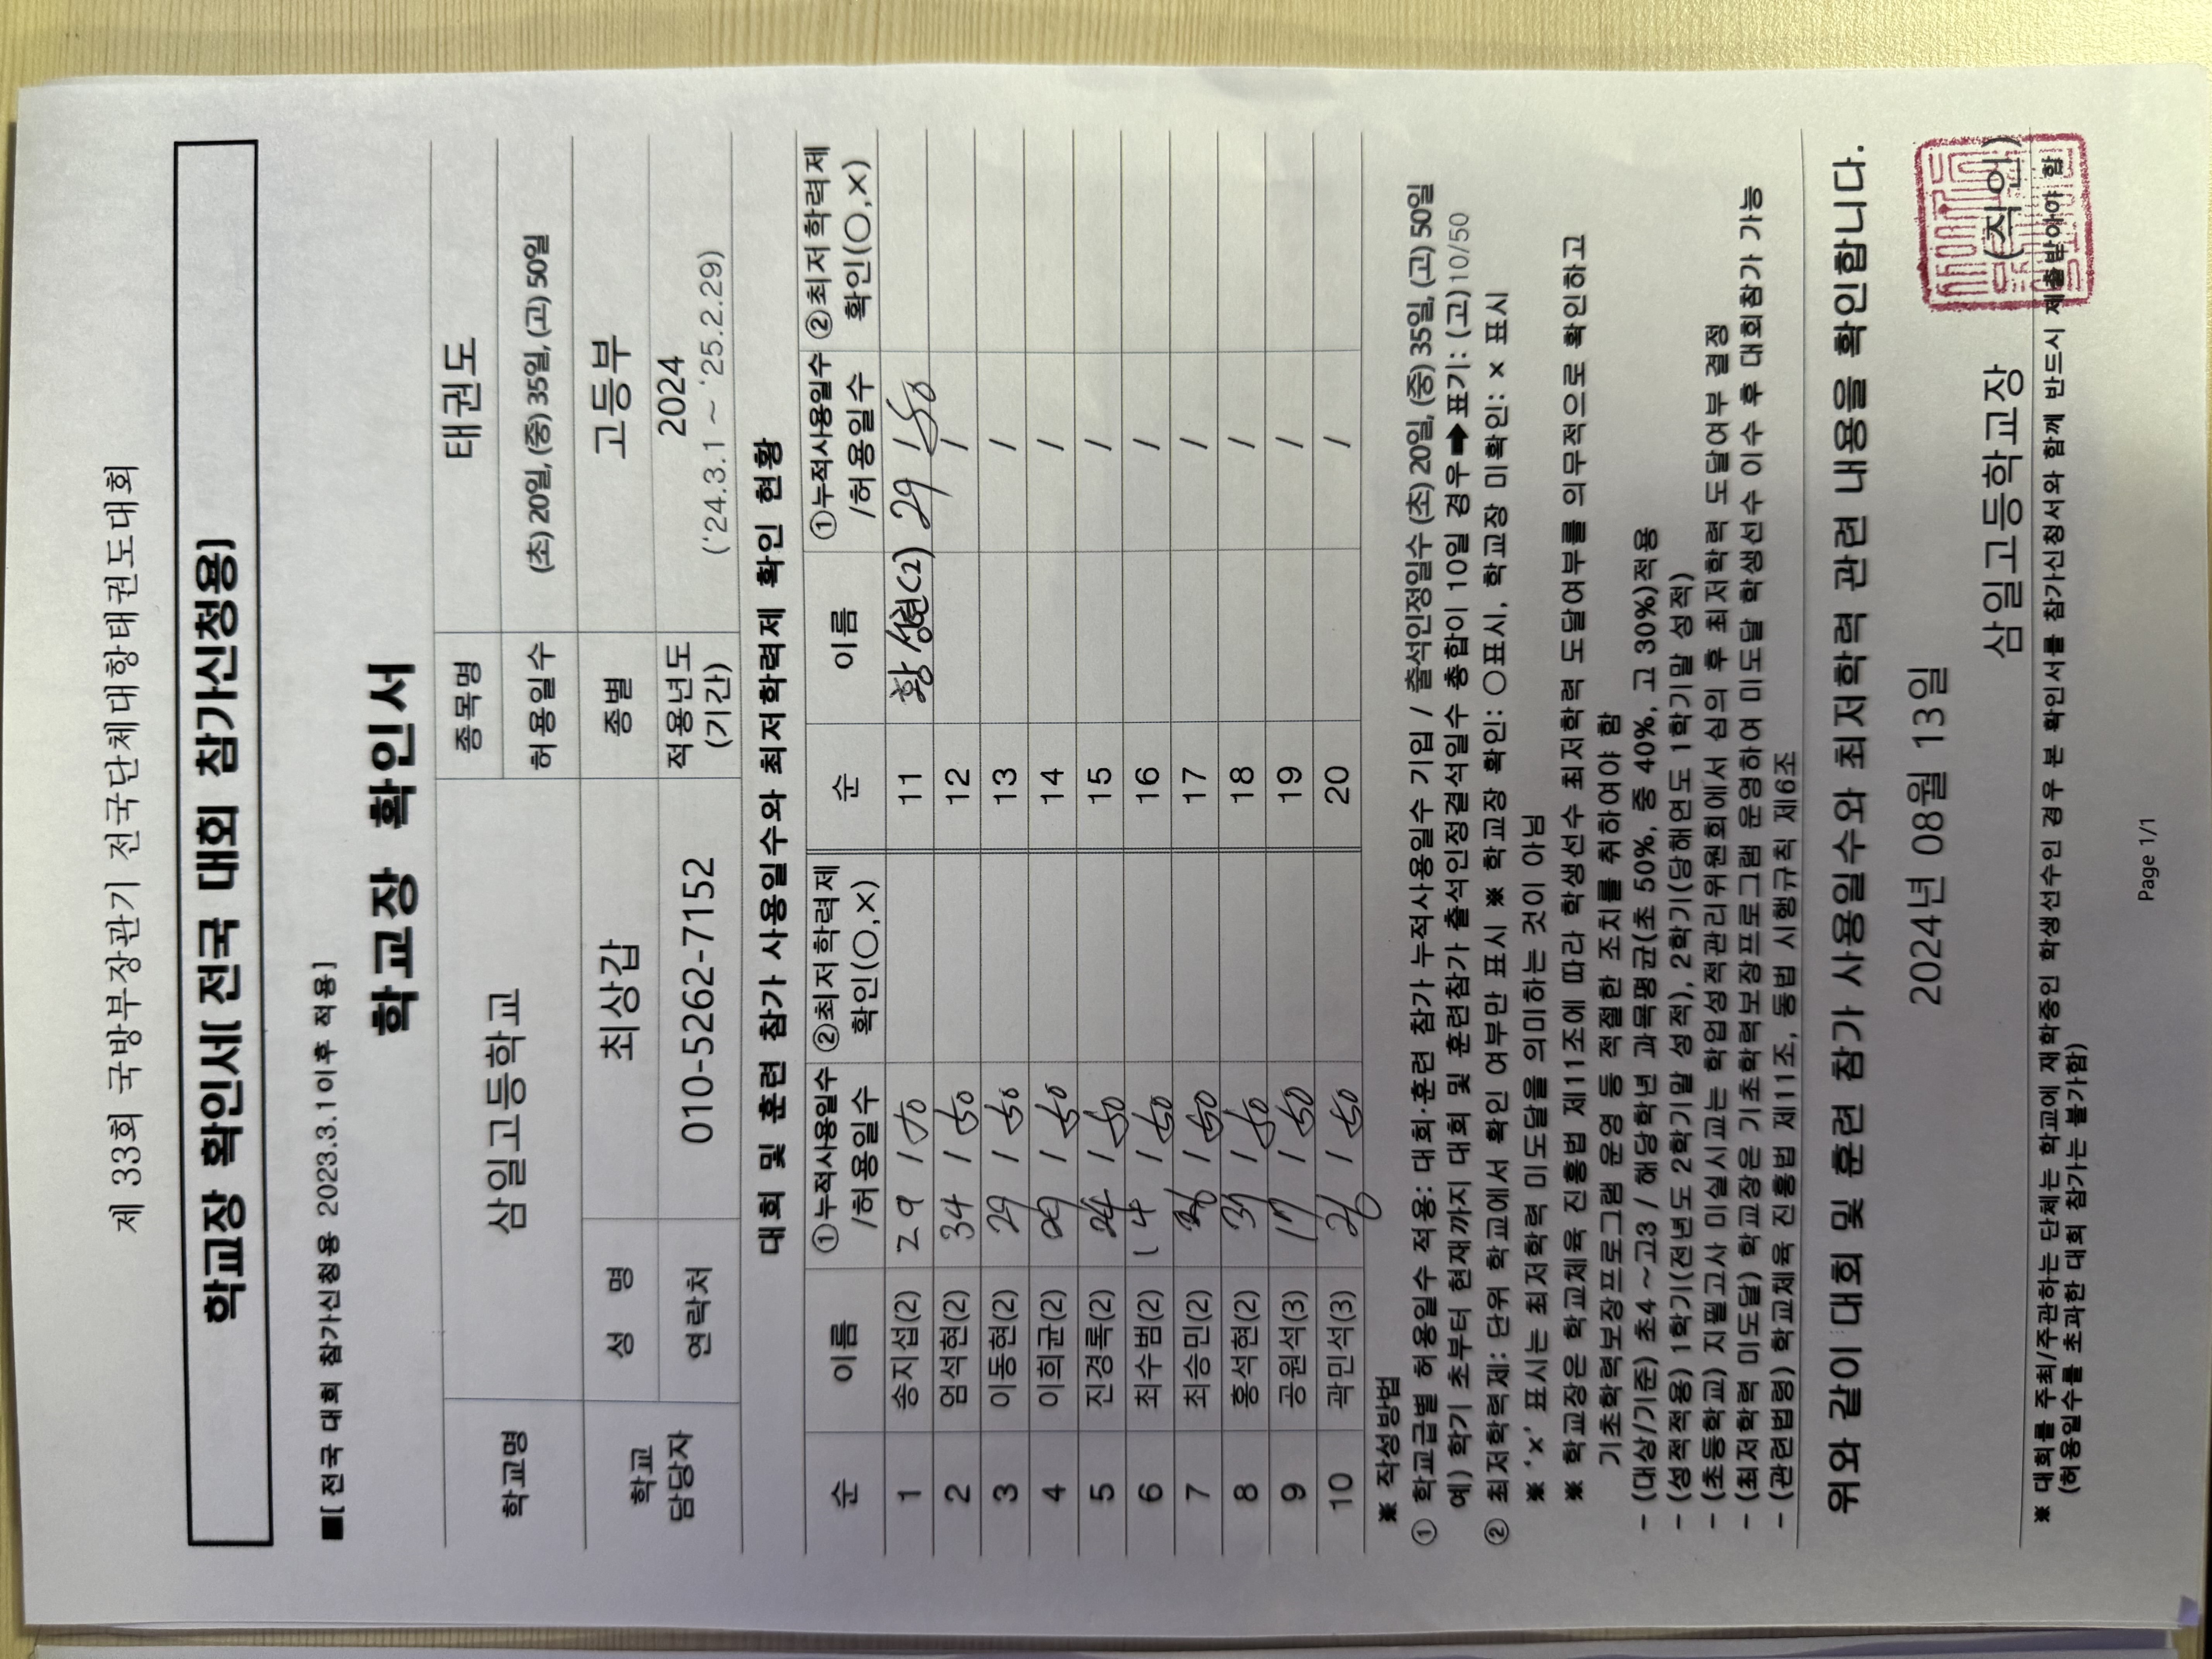 제 33회 국방부장관기 전국단체대항태권도대회
학교장 확인서[ 전국 대회 참가신청용]
■[ 전국 대회 참가신청용 2023.3.1이후 적용]
학교장 확인서
학교명 삼일고등학교 종목명 태권도
허용일수 (초) 20일, (중) 35일, (고) 50일
학교 담당자 성 명 최상갑 종별 고등부
연락처 010-5262-7152 적용년도 (기간) 2024 ('24.3.1 ~ '25.2.29)
대회 및 훈련 참가 사용일수와 최저학력제 확인 현황
순 이름 ①누적사용일수 /허용일수 ②최저학력제 확인(○,×) 순 이름 ①누적사용일수 /허용일수 ②최저학력제 확인(○,×)
1 송지섭(2) 29 / 50 11 황성현(2) 29 / 50
2 엄석현(2) 34 / 50 12 /
3 이동현(2) 29 / 50 13 /
4 이희균(2) / 50 14 /
5 진경록(2) 24 / 50 15 /
6 최수범(2) 14 / 50 16 /
7 최승민(2) / 50 17 /
8 홍석현(2) / 50 18 /
9 공원석(3) 17 / 50 19 /
10 곽민석(3) 26 / 50 20 /
※ 작성방법
① 학교급별 허용일수 적용: 대회·훈련 참가 누적사용일수 기입 / 출석인정일수 (초) 20일, (중) 35일, (고) 50일
예) 학기 초부터 현재까지 대회 및 훈련참가 출석인정결석일수 총합이 10일 경우➡표기: (고)10/50
② 최저학력제: 단위 학교에서 확인 여부만 표시 ※ 학교장 확인: ○표시, 학교장 미확인: × 표시
※ '×' 표시는 최저학력 미도달을 의미하는 것이 아님
※ 학교장은 학교체육 진흥법 제11조에 따라 학생선수 최저학력 도달여부를 의무적으로 확인하고
기초학력보장프로그램 운영 등 적절한 조치를 취하여야 함
- (대상/기준) 초4 ~고3 / 해당학년 과목평균(초 50%, 중 40%, 고 30%)적용
- (성적적용) 1학기(전년도 2학기말 성적), 2학기(당해연도 1학기말 성적)
- (초등학교) 지필고사 미실시교는 학업성적관리위원회에서 심의 후 최저학력 도달여부 결정
- (최저학력 미도달) 학교장은 기초학력보장프로그램 운영하여 미도달 학생선수 이수 후 대회참가 가능
- (관련법령) 학교체육 진흥법 제11조, 동법 시행규칙 제6조
위와 같이 대회 및 훈련 참가 사용일수와 최저학력 관련 내용을 확인합니다.
2024년 08월 13일
삼일고등학교장 (직인)
※ 대회를 주최/주관하는 단체는 학교에 재학중인 학생선수인 경우 본 확인서를 참가신청서와 함께 반드시 제출받아야 함
(허용일수를 초과한 대회 참가는 불가함)
Page 1/1